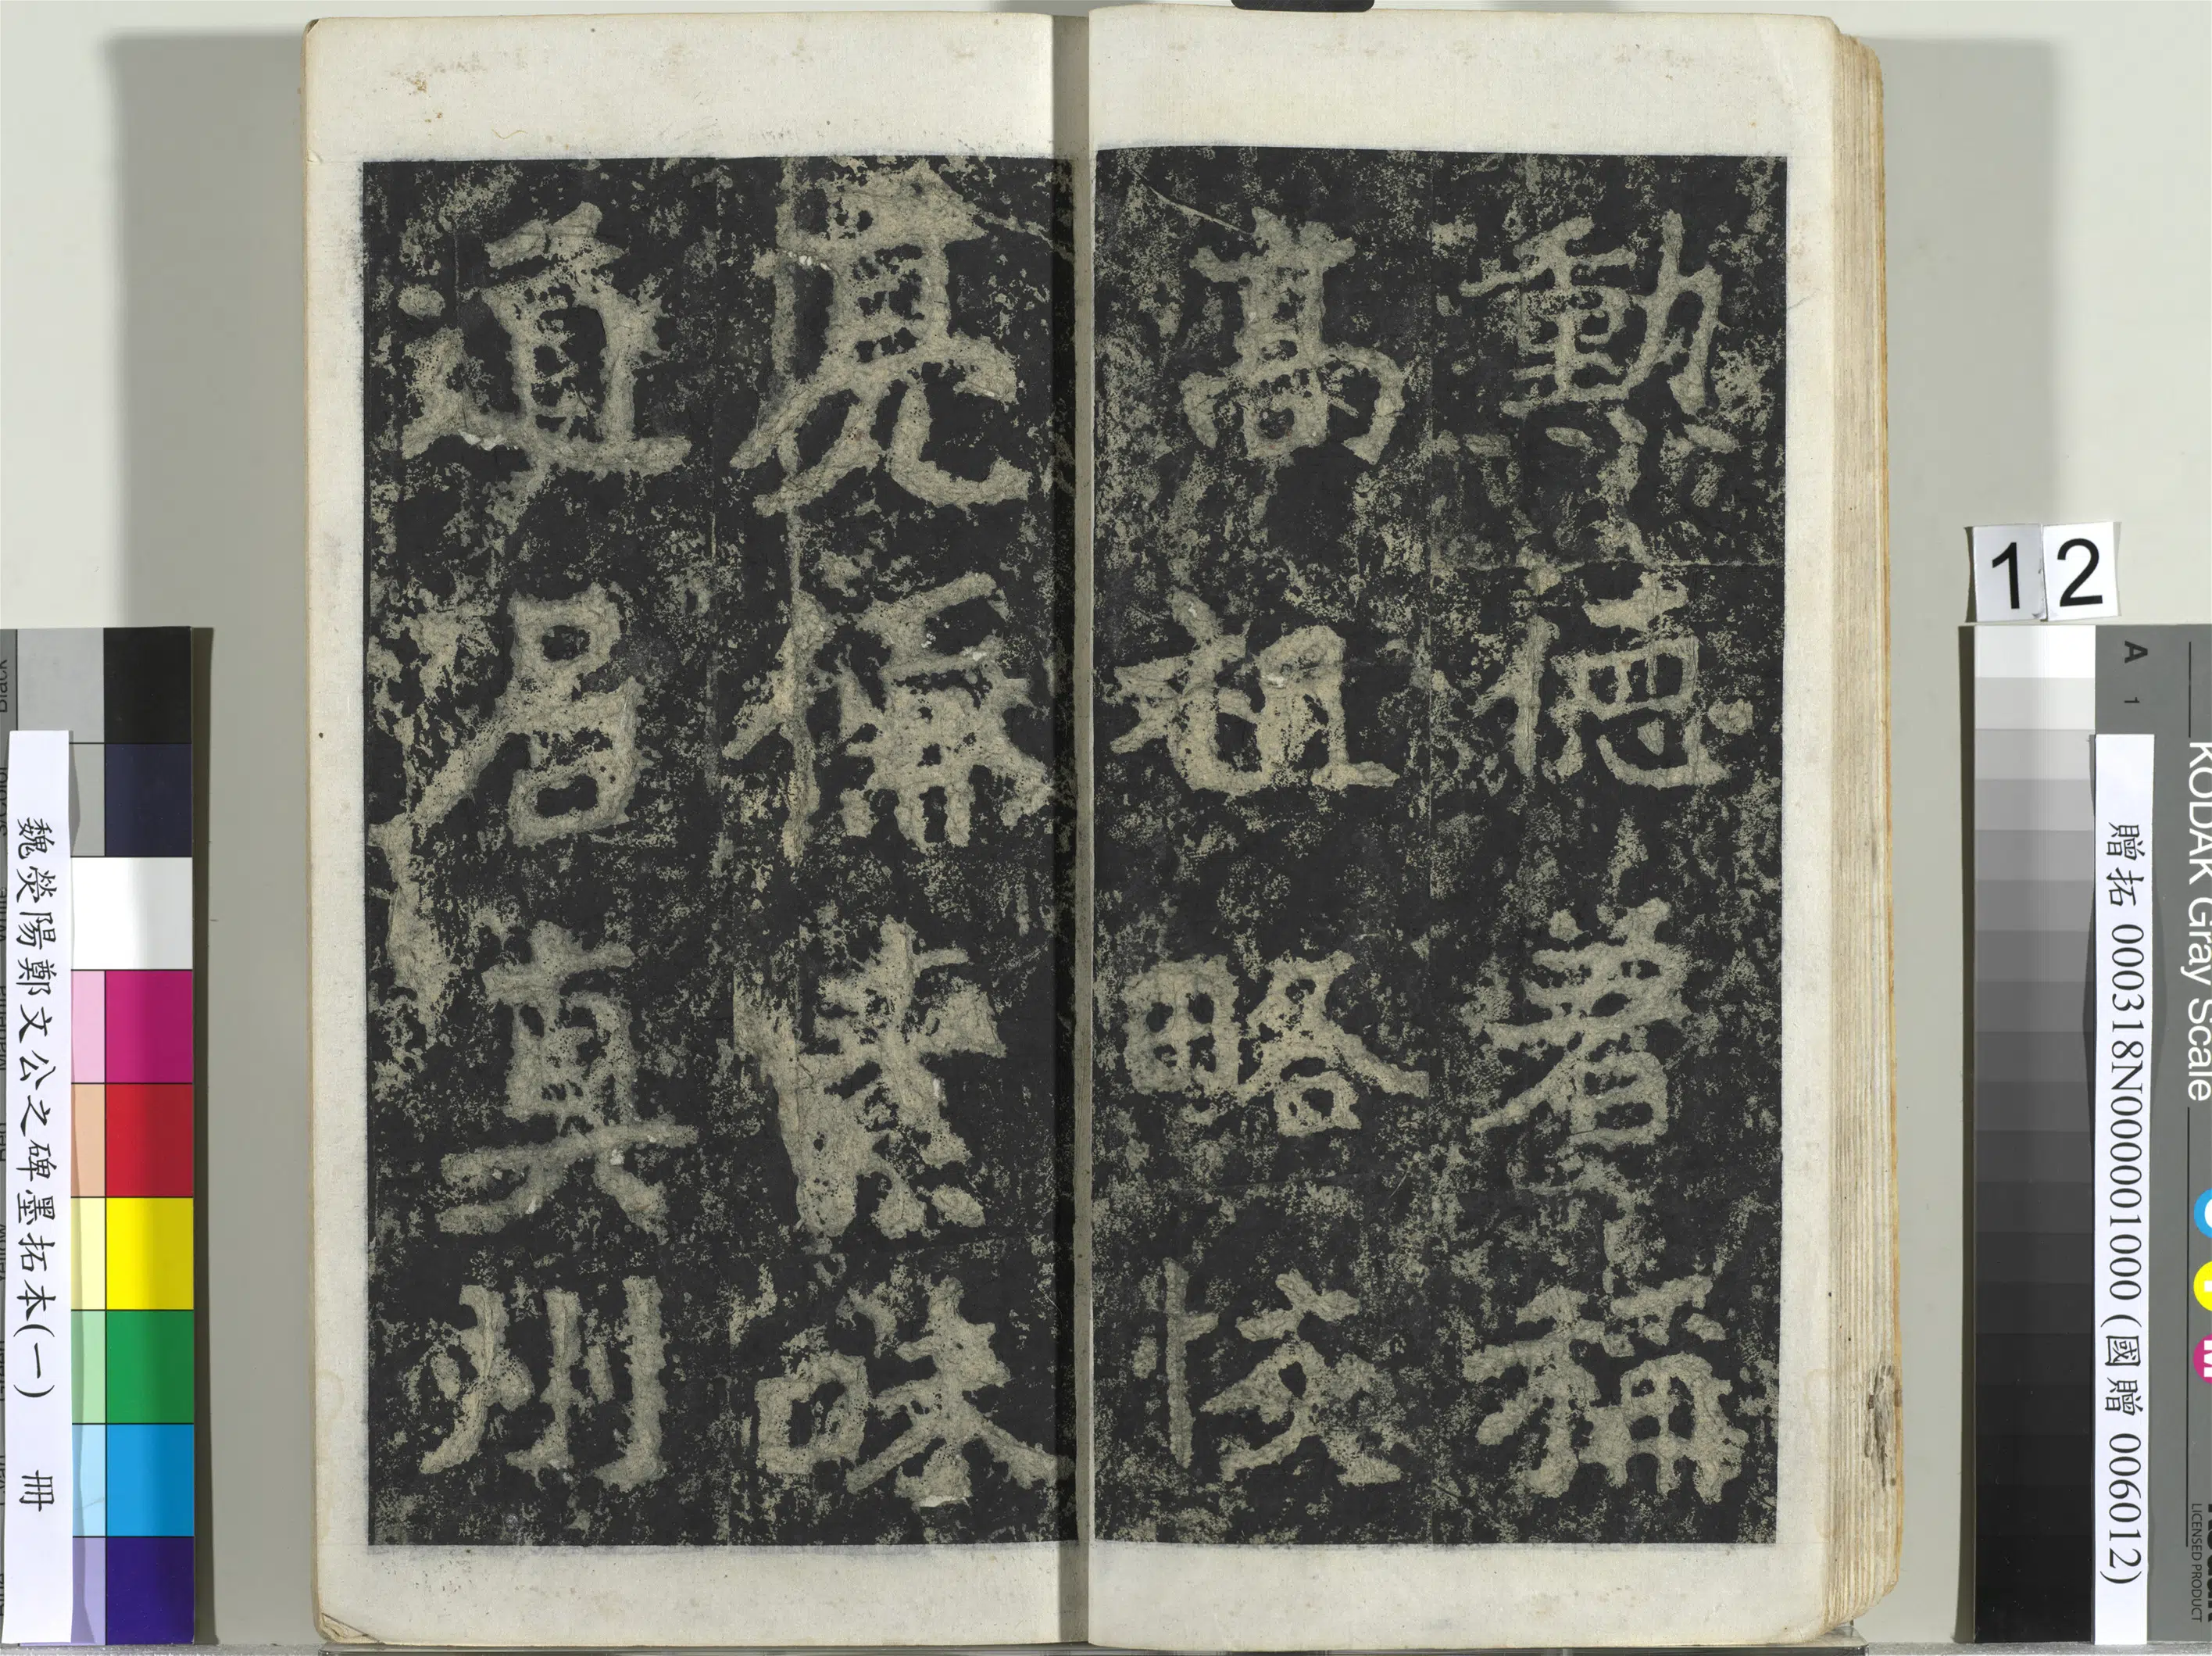 勳德著稱
高祖略恢
亮儒素味
道居真州
12
贈拓 000318N000001000 (國贈 006012)
魏滎陽鄭文公之碑墨拓本(一) 冊
KODAK Gray Scale
A 1
LICENSED PRODUCT